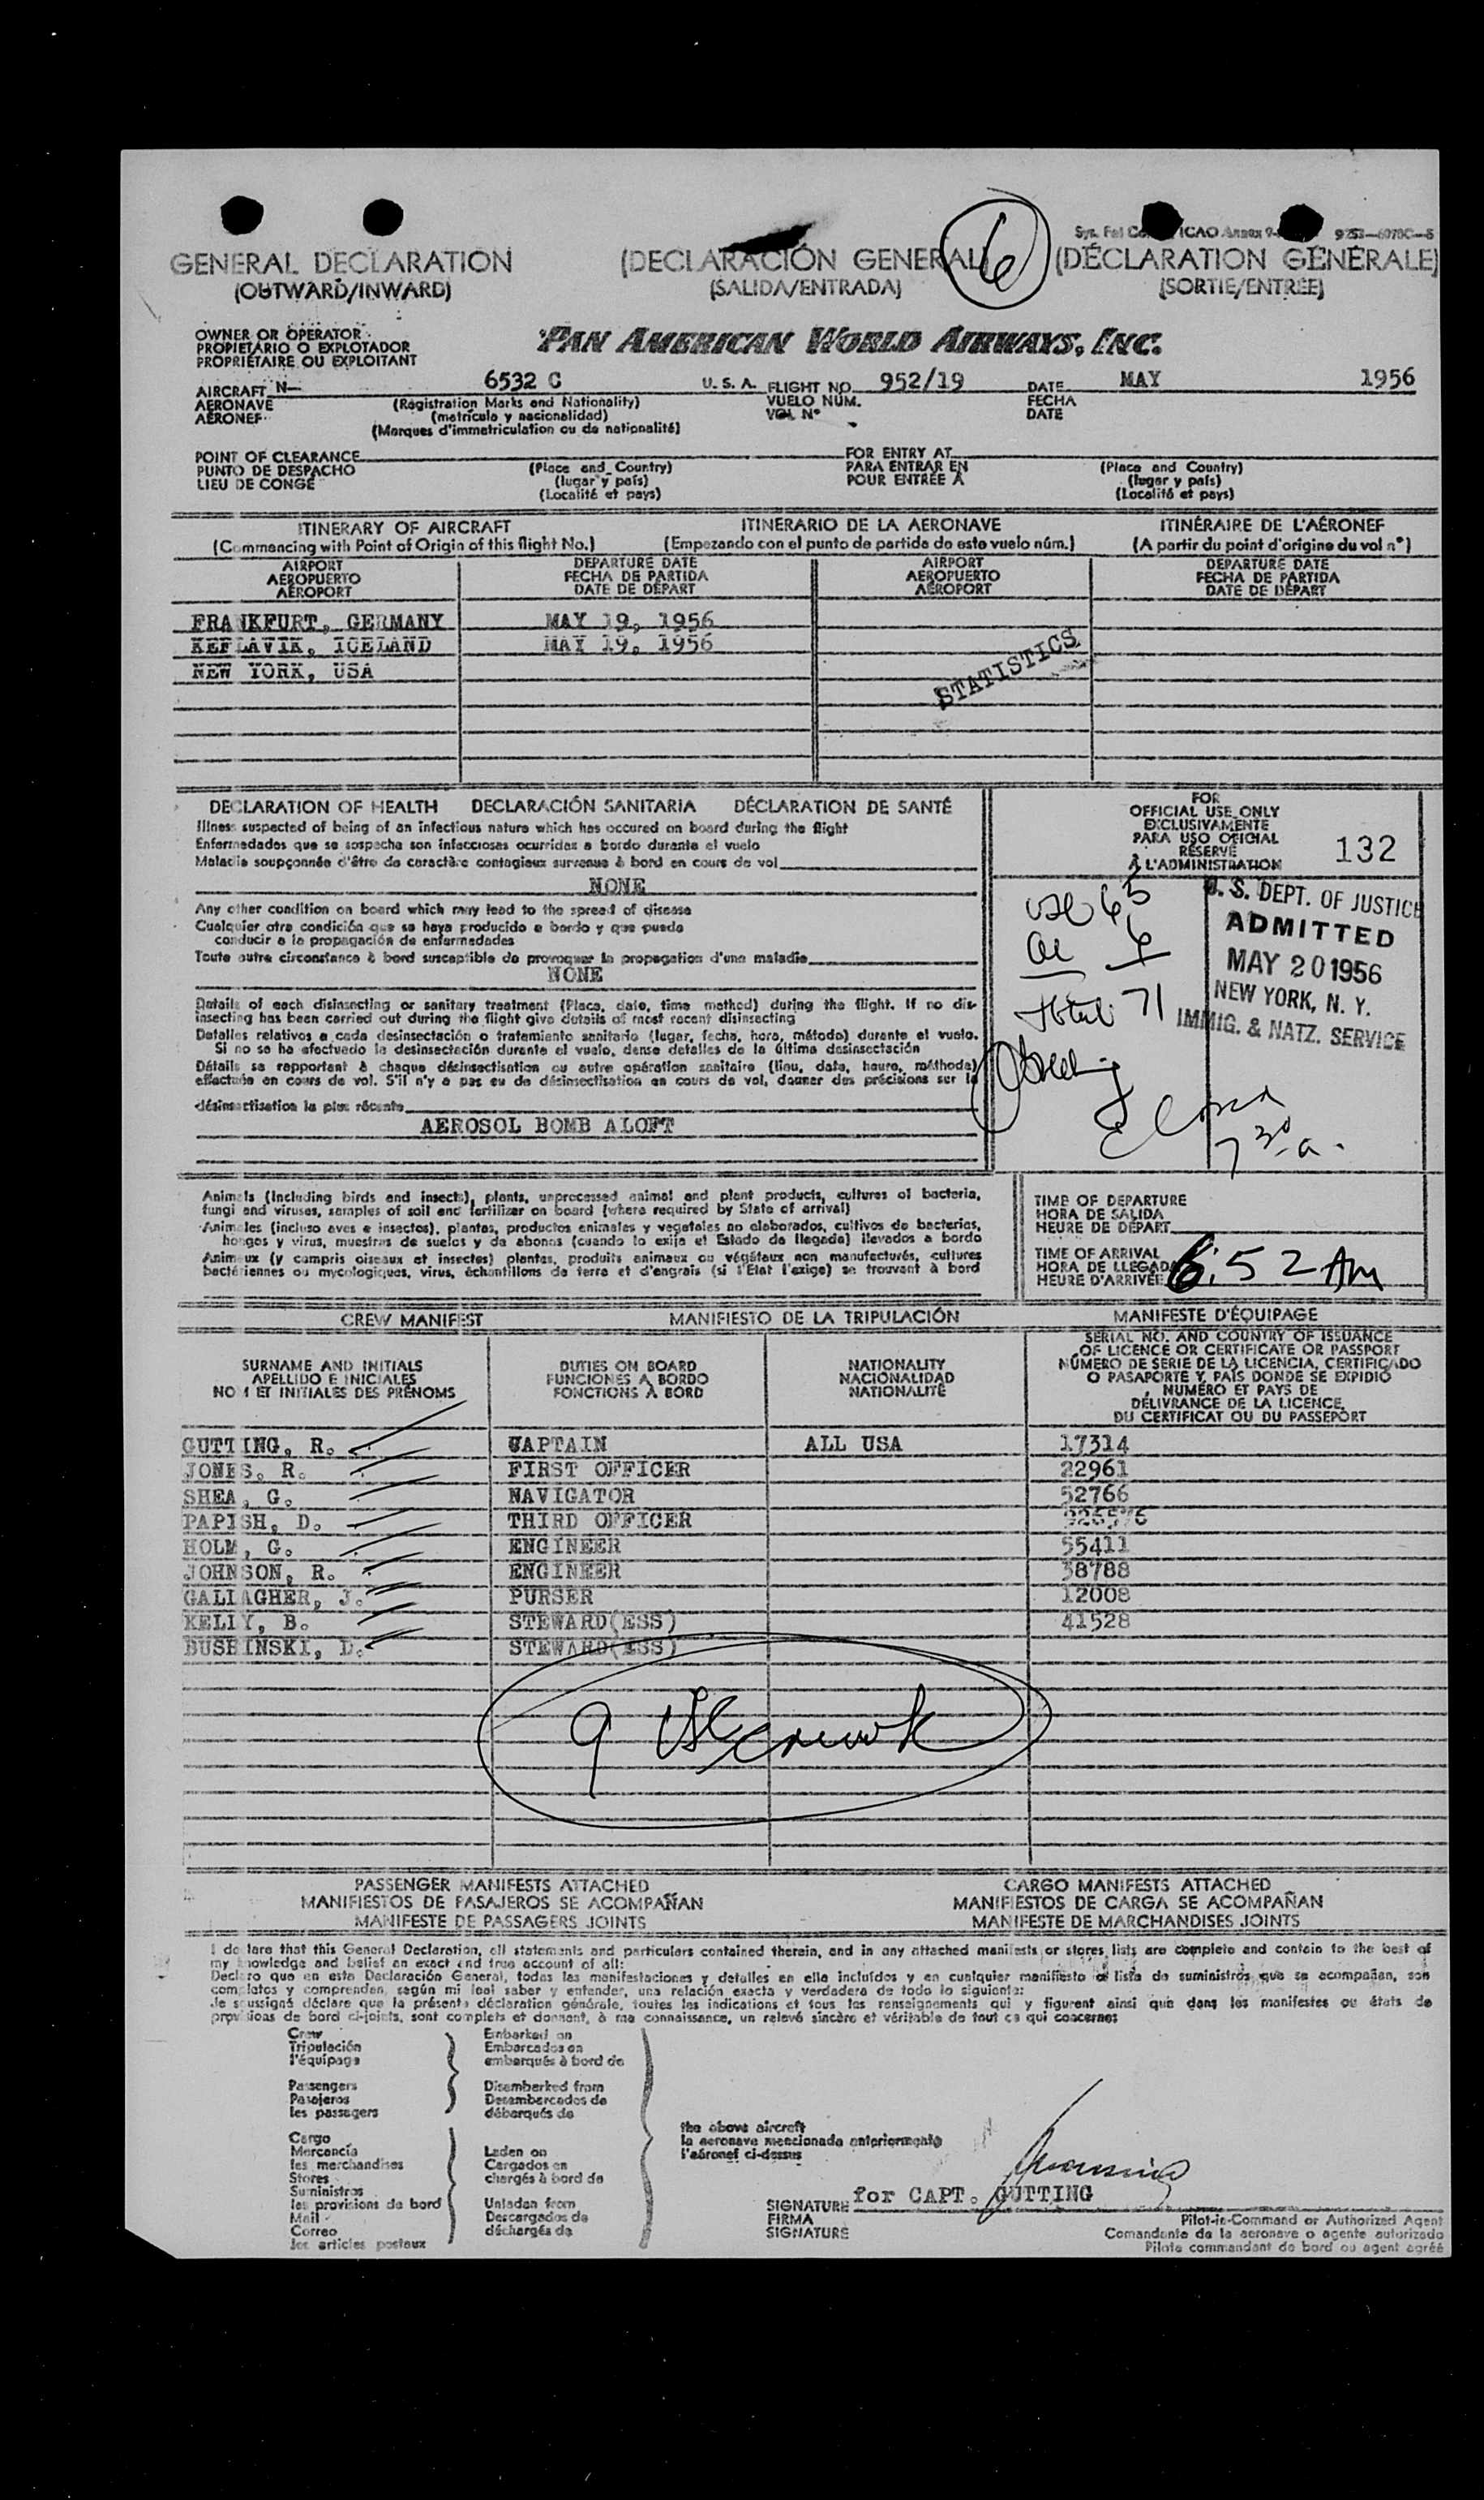 6
ICAO Annex 9
GENERAL DECLARATION (DECLARACIÓN GENERAL) (DÉCLARATION GÉNÉRALE)
(OUTWARD/INWARD) (SALIDA/ENTRADA) (SORTIE/ENTRÉE)
OWNER OR OPERATOR
PROPIETARIO O EXPLOTADOR
PROPRIÉTAIRE OU EXPLOITANT
PAN AMERICAN WORLD AIRWAYS, INC.
AIRCRAFT N— 6532 C U. S. A. FLIGHT NO. 952/19 DATE MAY 1956
AERONAVE (Registration Marks and Nationality) VUELO NÚM. FECHA
AÉRONEF (matrícula y nacionalidad) VOL N° DATE
(Marques d'immatriculation ou de nationalité)
POINT OF CLEARANCE FOR ENTRY AT
PUNTO DE DESPACHO (Place and Country) PARA ENTRAR EN (Place and Country)
LIEU DE CONGÉ (lugar y país) POUR ENTRÉE À (lugar y país)
(Localité et pays) (Localité et pays)
ITINERARY OF AIRCRAFT ITINERARIO DE LA AERONAVE ITINÉRAIRE DE L'AÉRONEF
(Commencing with Point of Origin of this flight No.) (Empezando con el punto de partida de este vuelo núm.) (A partir du point d'origine du vol n°)
AIRPORT DEPARTURE DATE AIRPORT DEPARTURE DATE
AEROPUERTO FECHA DE PARTIDA AEROPUERTO FECHA DE PARTIDA
AÉROPORT DATE DE DÉPART AÉROPORT DATE DE DÉPART
FRANKFURT, GERMANY MAY 19, 1956
KEFLAVIK, ICELAND MAY 19, 1956
NEW YORK, USA
STATISTICS
DECLARATION OF HEALTH DECLARACIÓN SANITARIA DÉCLARATION DE SANTÉ
Illness suspected of being of an infectious nature which has occured on board during the flight
Enfermedades que se sospecha son infecciosas ocurridas a bordo durante el vuelo
Maladie soupçonnée d'être de caractère contagieux survenue à bord en cours de vol
NONE
Any other condition on board which may lead to the spread of disease
Cualquier otra condición que se haya producido a bordo y que pueda
conducir a la propagación de enfermedades
Toute autre circonstance à bord susceptible de provoquer la propagation d'une maladie
NONE
Details of each disinsecting or sanitary treatment (Place, date, time method) during the flight. If no dis-
insecting has been carried out during the flight give details of most recent disinsecting
Detalles relativos a cada desinsectación o tratamiento sanitario (lugar, fecha, hora, método) durante el vuelo.
Si no se ha efectuado la desinsectación durante el vuelo, dense detalles de la última desinsectación
Détails se rapportant à chaque désinsectisation ou autre opération sanitaire (lieu, date, heure, méthode)
effectuée en cours de vol. S'il n'y a pas eu de désinsectisation en cours de vol, donner des précisions sur la
désinsectisation la plus récente
AEROSOL BOMB ALOFT
FOR
OFFICIAL USE ONLY
EXCLUSIVAMENTE
PARA USO OFICIAL
RÉSERVÉ
À L'ADMINISTRATION
132
USC 65
al 6
total 71
U. S. DEPT. OF JUSTICE
ADMITTED
MAY 20 1956
NEW YORK, N. Y.
IMMIG. & NATZ. SERVICE
7 30 a.
Animals (Including birds and insects), plants, unprocessed animal and plant products, cultures of bacteria,
fungi and viruses, samples of soil and fertilizer on board (where required by State of arrival)
Animales (incluso aves e insectos), plantas, productos animales y vegetales no elaborados, cultivos de bacterias,
hongos y virus, muestras de suelos y de abonos (cuando lo exija el Estado de llegada) llevados a bordo
Animaux (y compris oiseaux et insectes) plantes, produits animaux ou végétaux non manufacturés, cultures
bactériennes ou mycologiques, virus, échantillons de terre et d'engrais (si l'État l'exige) se trouvant à bord
TIME OF DEPARTURE
HORA DE SALIDA
HEURE DE DÉPART
TIME OF ARRIVAL
HORA DE LLEGADA
HEURE D'ARRIVÉE 6:52 AM
CREW MANIFEST MANIFIESTO DE LA TRIPULACIÓN MANIFESTE D'ÉQUIPAGE
SURNAME AND INITIALS
APELLIDO E INICIALES
NOM ET INITIALES DES PRÉNOMS
DUTIES ON BOARD
FUNCIONES A BORDO
FONCTIONS À BORD
NATIONALITY
NACIONALIDAD
NATIONALITÉ
SERIAL NO. AND COUNTRY OF ISSUANCE
OF LICENCE OR CERTIFICATE OR PASSPORT
NÚMERO DE SERIE DE LA LICENCIA, CERTIFICADO
O PASAPORTE Y PAÍS DONDE SE EXPIDIÓ
NUMÉRO ET PAYS DE
DÉLIVRANCE DE LA LICENCE,
DU CERTIFICAT OU DU PASSEPORT
GUTTING, R. CAPTAIN ALL USA 17314
JONES, R. FIRST OFFICER 22961
SHEA, G. NAVIGATOR 52766
PAPISH, D. THIRD OFFICER
HOLM, G. ENGINEER 55411
JOHNSON, R. ENGINEER 38788
GALLAGHER, J. PURSER 12008
KELLY, B. STEWARD(ESS) 41528
BUSBINSKI, D. STEWARD(ESS)
9 USC
PASSENGER MANIFESTS ATTACHED CARGO MANIFESTS ATTACHED
MANIFIESTOS DE PASAJEROS SE ACOMPAÑAN MANIFIESTOS DE CARGA SE ACOMPAÑAN
MANIFESTE DE PASSAGERS JOINTS MANIFESTE DE MARCHANDISES JOINTS
I declare that this General Declaration, all statements and particulars contained therein, and in any attached manifests or stores lists are complete and contain to the best of
my knowledge and belief an exact and true account of all:
Declaro que en esta Declaración General, todas las manifestaciones y detalles en ella incluídos y en cualquier manifiesto o lista de suministros que se acompañan, son
completos y comprenden, según mi leal saber y entender, una relación exacta y verdadera de todo lo siguiente:
Je soussigné déclare que la présente déclaration générale, toutes les indications et tous les renseignements qui y figurent ainsi que dans les manifestes ou états de
provisions de bord ci-joints, sont complets et donnent, à ma connaissance, un relevé sincère et véritable de tout ce qui concerne:
Crew Embarked on
Tripulación Embarcados en
l'équipage embarqués à bord de
Passengers Disembarked from
Pasajeros Desembarcados de
les passagers débarqués de
the above aircraft
la aeronave mencionada anteriormente
l'aéronef ci-dessus
Cargo
Mercancía Laden on
les marchandises Cargados en
Stores chargés à bord de
Suministros
les provisions de bord Unladen from
Mail Descargados de
Correo déchargés de
les articles postaux
SIGNATURE for CAPT. GUTTING
FIRMA
SIGNATURE
Pilot-in-Command or Authorized Agent
Comandante de la aeronave o agente autorizado
Pilote commandant de bord ou agent agréé